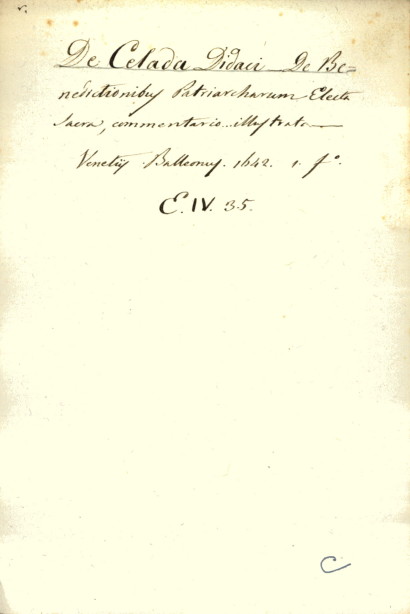 De Celada Didaci De Be=
nedictionibus Patriarcharum Electa
Sacra, commentario illustrata
Venetijs Balleonus. 1642. 1. fº.
E. IV. 35.
C